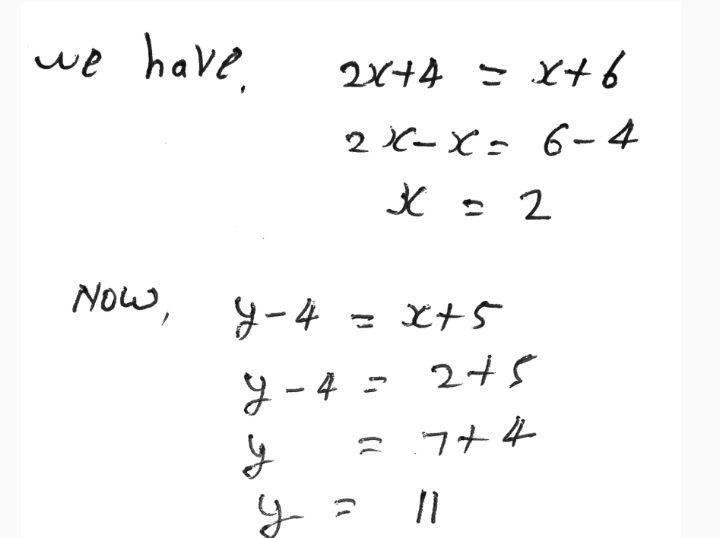 we have, 2x+4 = x+6
2x-x = 6-4
x = 2
Now, y-4 = x+5
y-4 = 2+5
y = 7+4
y = 11